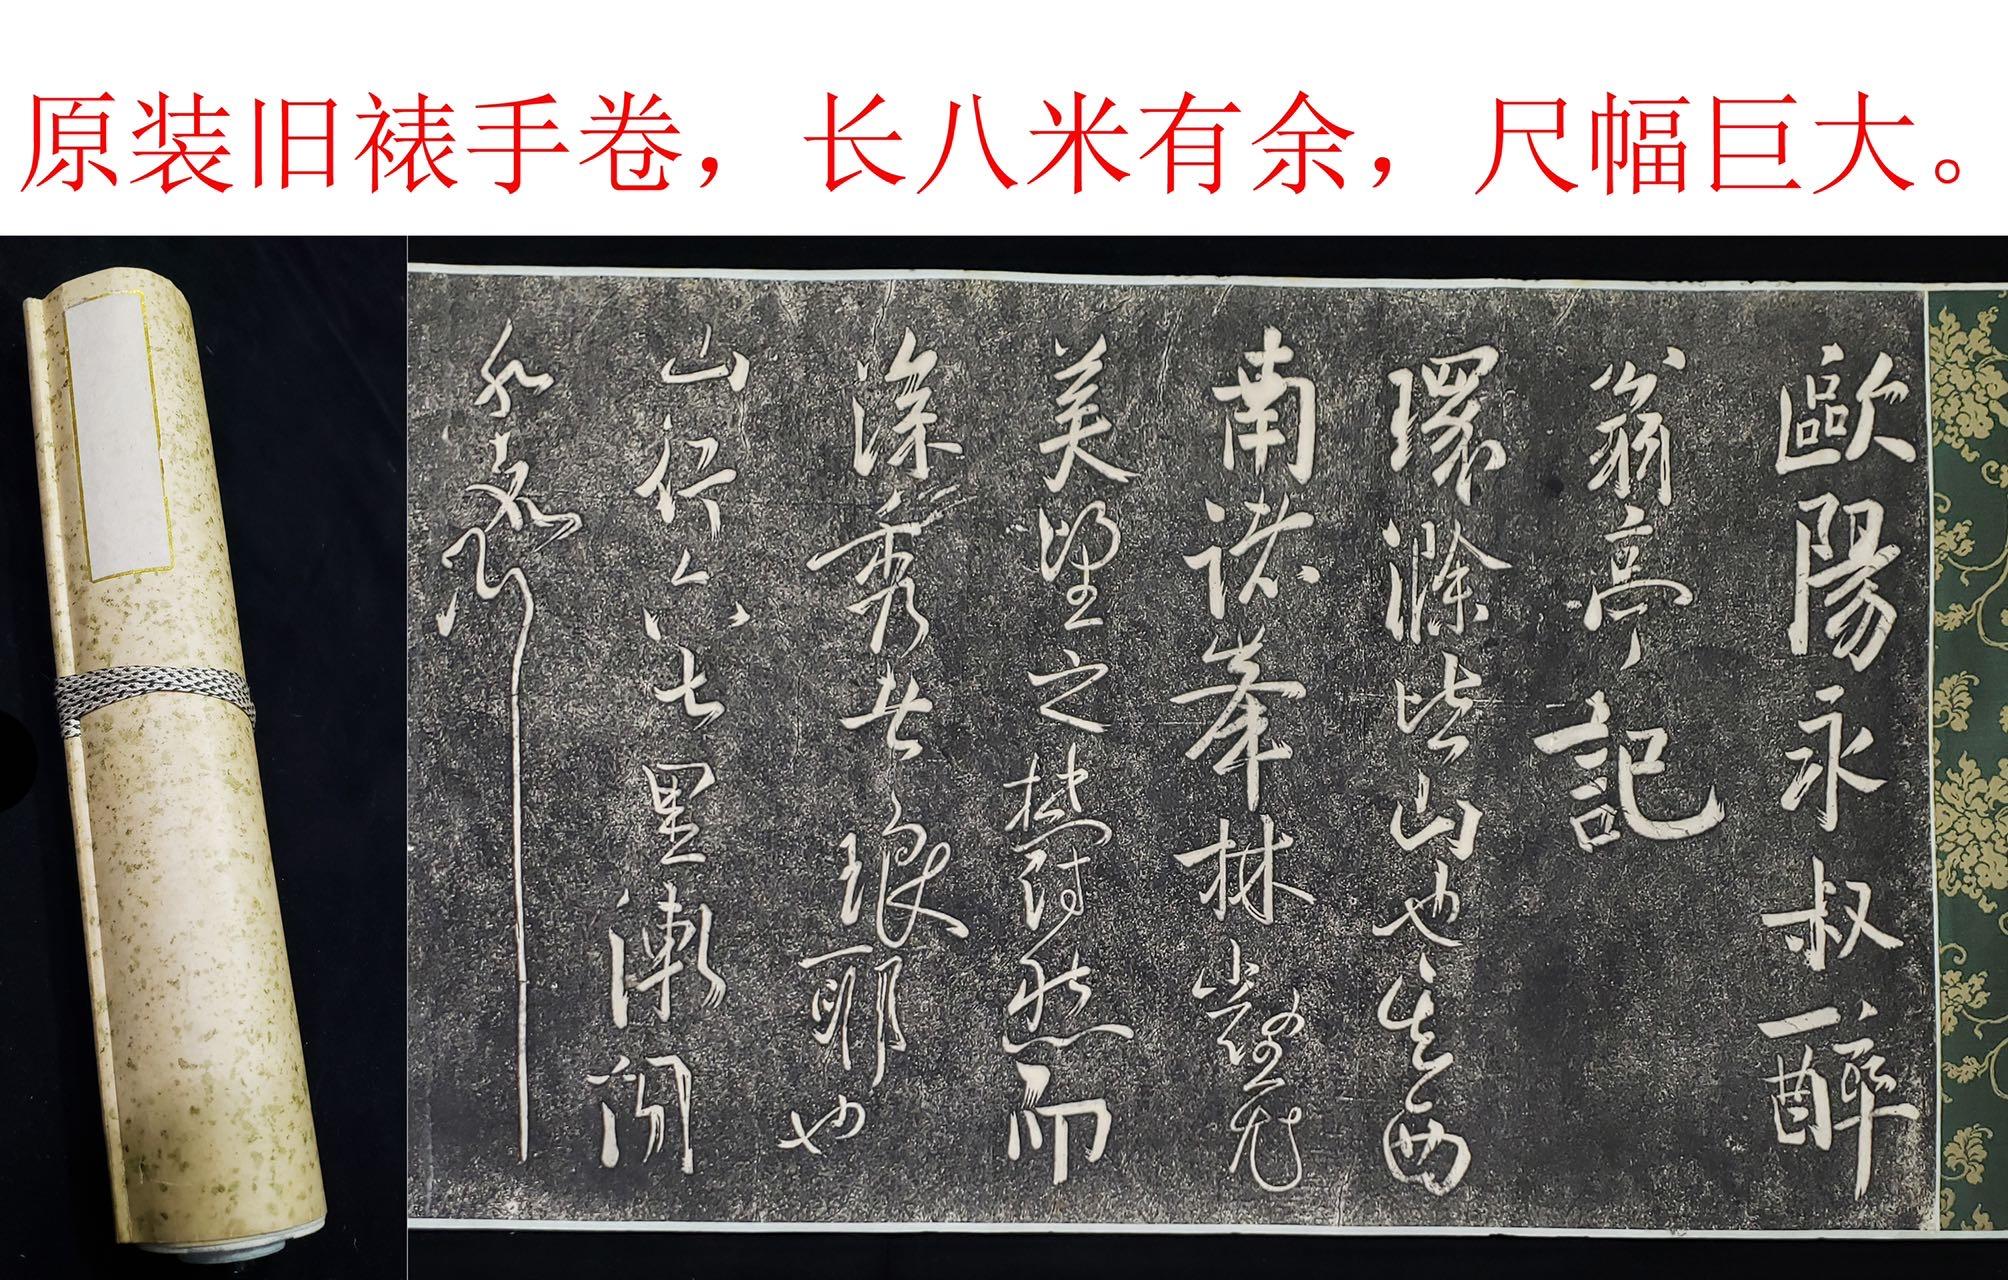 原装旧裱手卷，长八米有余，尺幅巨大。
歐陽永叔醉
翁亭記
環滁皆山也其西
南諸峯林壑尤
美望之蔚然而
深秀者琅耶也
山行六七里漸聞
水聲